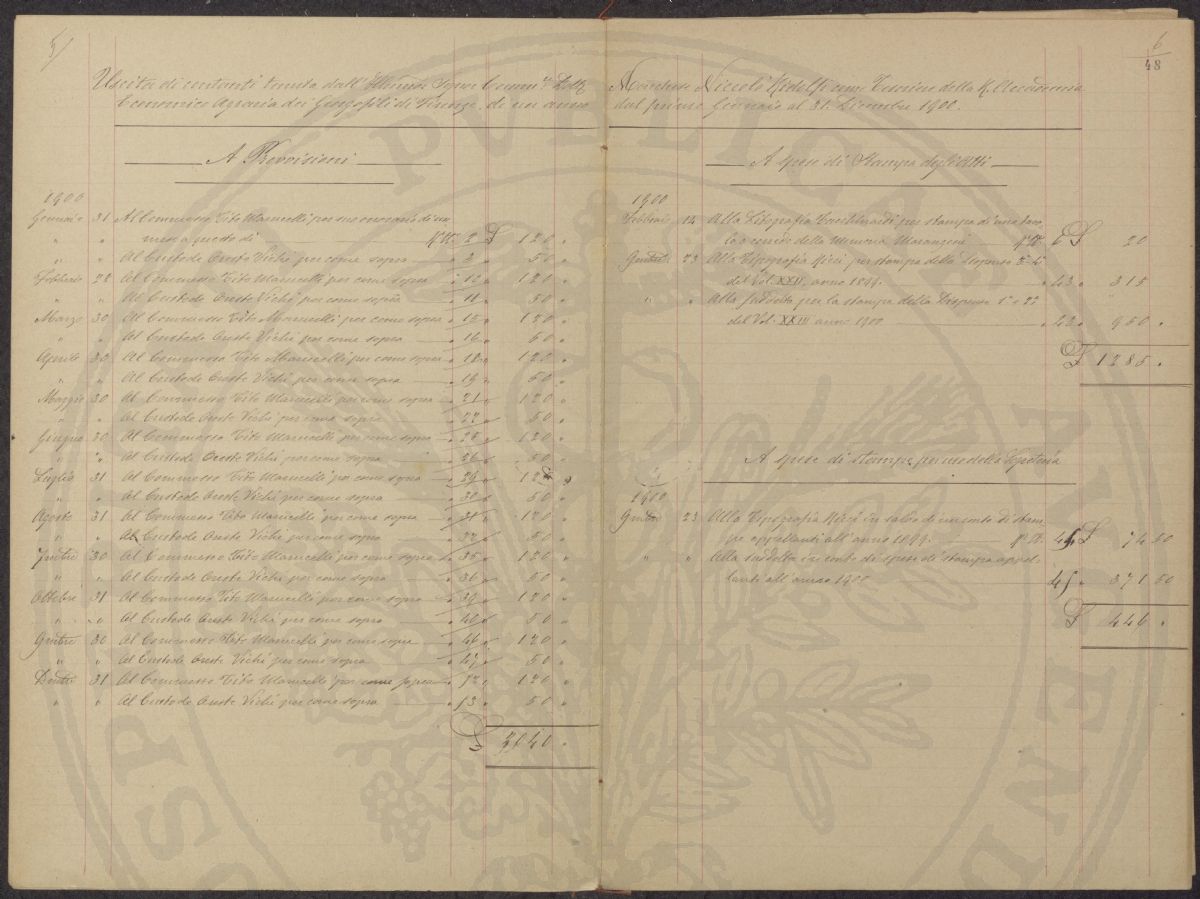 5/
Uscita di contanti tenuta dall' Illmo Signor Comm. Dott.
Economico Agraria dei Georgofili di Firenze, di un anno
A Provvisioni
1900
Gennaio 31 Al Commesso Tito Marucelli per suo onorario di un
mese a questo dì N° 2 £ 120 "
" " Al Custode Oreste Vichi per come sopra " 3 " 50 "
Febbraio 28 Al Commesso Tito Marucelli per come sopra " 10 " 120 "
" " Al Custode Oreste Vichi per come sopra " 11 " 50 "
Marzo 30 Al Commesso Tito Marucelli per come sopra " 15 " 120 "
" Al Custode Oreste Vichi per come sopra " 16 " 50 "
Aprile 30 Al Commesso Tito Marucelli per come sopra " 18 " 120 "
" " Al Custode Oreste Vichi per come sopra " 19 " 50 "
Maggio 30 Al Commesso Tito Marucelli per come sopra " 21 " 120 "
" Al Custode Oreste Vichi per come sopra " 22 " 50 "
Giugno 30 Al Commesso Tito Marucelli per come sopra " 25 " 120 "
" Al Custode Oreste Vichi per come sopra " 26 " 50 "
Luglio 31 Al Commesso Tito Marucelli per come sopra " 29 " 120 "
" " Al Custode Oreste Vichi per come sopra " 30 " 50 "
Agosto 31 Al Commesso Tito Marucelli per come sopra " 31 " 120 "
" " Al Custode Oreste Vichi per come sopra " 32 " 50 "
7mbre 30 Al Commesso Tito Marucelli per come sopra " 35 " 120 "
" " Al Custode Oreste Vichi per come sopra " 36 " 50 "
Ottobre 31 Al Commesso Tito Marucelli per come sopra " 39 " 120 "
" " Al Custode Oreste Vichi per come sopra " 40 " 50 "
9mbre 30 Al Commesso Tito Marucelli per come sopra " 46 " 120 "
" " Al Custode Oreste Vichi per come sopra " 47 " 50 "
Dmbre 31 Al Commesso Tito Marucelli per come sopra " 52 " 120 "
" " Al Custode Oreste Vichi per come sopra " 53 " 50 "
£ 2040 "
6
48
Marchese Niccolò Ridolfi come Tesoriere della R. Accademia
dal primo Gennaio al 31. Dicembre 1900.
A spese di Stampa degli Atti
1900
Febbraio 14 Alla Litografia per stampa di una tavo-
la a corredo della Memoria Marangoni N° 6 £ 20
9mbre 23 Alla Tipografia Ricci per stampa della Dispensa 3-4
del Vol. XXII, anno 1899. " 43 " 315
" " Alla suddetta per la stampa della Dispensa 1ª e 2ª
del Vol. XXIII anno 1900 " 43 " 950 "
£ 1285 "
A spese di stampe per uso della Segreteria
1900
9mbre 23 Alla Tipografia Ricci in saldo di un conto di stam-
pe appellanti all'anno 1899. N° 45 £ 74 50
" " Alla suddetta in conto di spese di stampa appel-
lanti all'anno 1900 45 " 371 50
£ 446 "
PUBLICAE